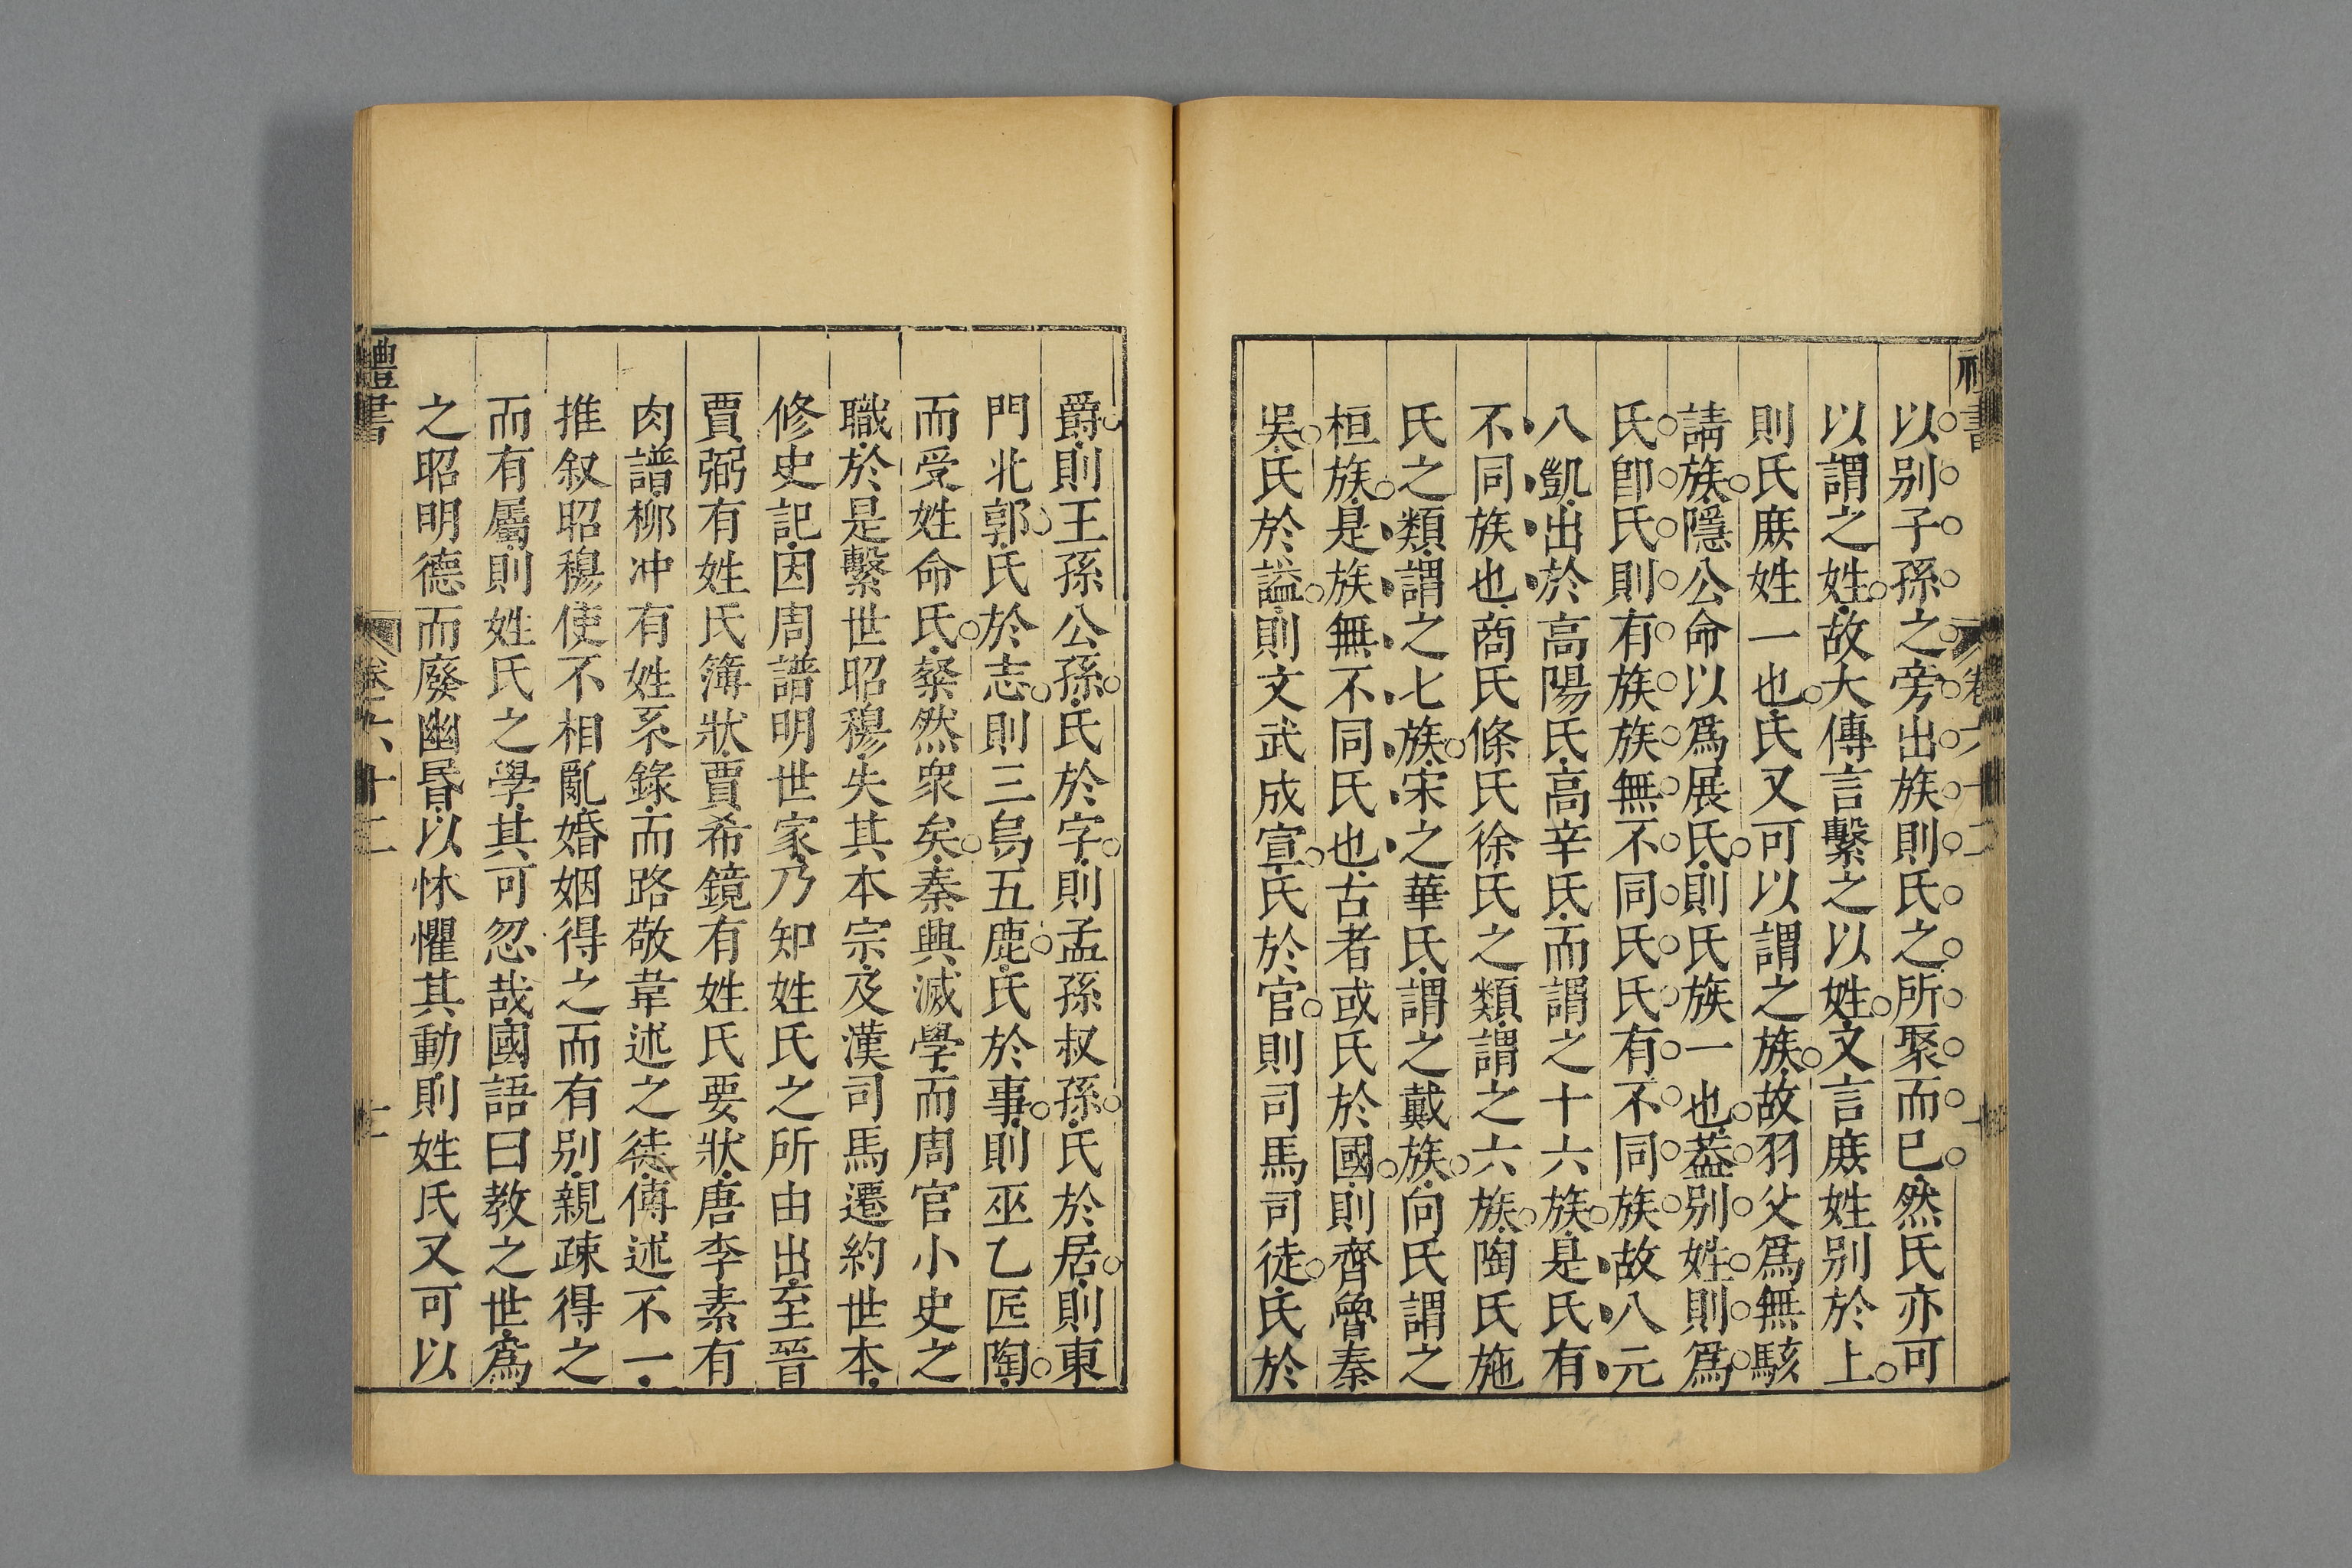 以别子孫之旁出族則氏之所聚而已然氏亦可
以謂之姓故大傳言繫之以姓文言庻姓别於上
則氏庻姓一也氏又可以謂之族故羽父爲無駭
請族隱公命以爲展氏則氏族一也葢别姓則爲
氏卽氏則有族族無不同氏氏有不同族故八元
八凱出於高陽氏高辛氏而謂之十六族是氏有
不同族也商氏條氏徐氏之類謂之六族陶氏施
氏之類謂之七族宋之華氏謂之戴族向氏謂之
桓族是族無不同氏也古者或氏於國則齊魯秦
吳氏於謚則文武成宣氏於官則司馬司徒氏於
爵則王孫公孫氏於字則孟孫叔孫氏於居則東
門北郭氏於志則三烏五鹿氏於事則巫乙匠陶
而受姓命氏粲然衆矣秦興滅學而周官小史之
職於是繫世昭穆失其本宗及漢司馬遷約世本
修史記因周譜明世家乃知姓氏之所由出至晉
賈弼有姓氏簿狀賈希鏡有姓氏要狀唐李素有
肉譜柳冲有姓系錄而路敬韋述之徒傳述不一
推叙昭穆使不相亂婚姻得之而有别親疎得之
而有屬則姓氏之學其可忽哉國語曰教之世爲
之昭明德而廢幽昬以怵懼其動則姓氏又可以
禮書 卷六十二